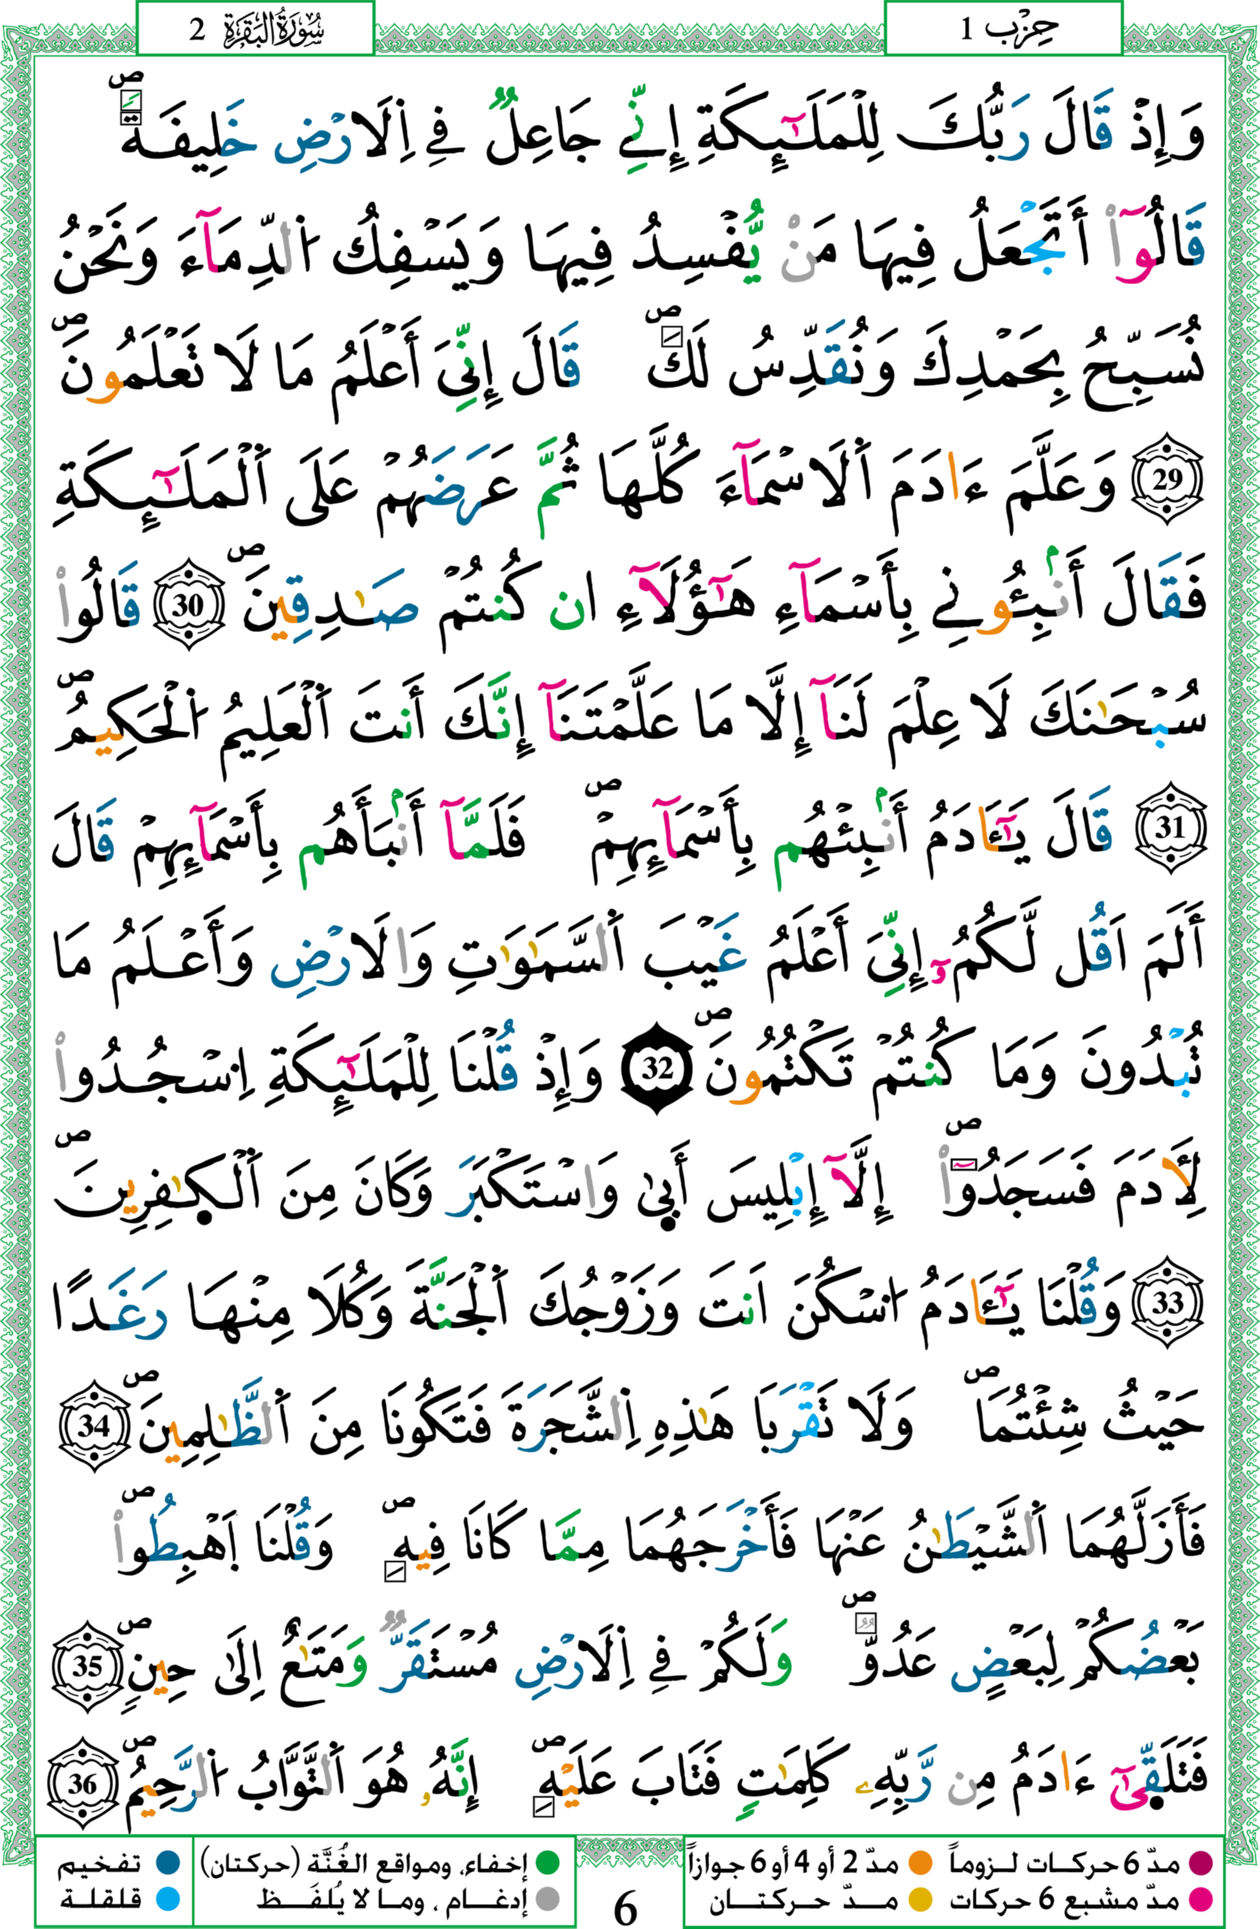 حِزْب 1
سُورَةُ الْبَقَرَةِ 2
وَإِذْ قَالَ رَبُّكَ لِلْمَلَٰٓئِكَةِ إِنِّے جَاعِلٞ فِے اِلَارْضِ خَلِيفَةٗۖ
قَالُوٓاْ أَتَجْعَلُ فِيهَا مَنْ يُّفْسِدُ فِيهَا وَيَسْفِكُ اُ۬لدِّمَآءَ وَنَحْنُ
نُسَبِّحُ بِحَمْدِكَ وَنُقَدِّسُ لَكَۖ قَالَ إِنِّىَ أَعْلَمُ مَا لَا تَعْلَمُونَۖ
29 وَعَلَّمَ ءَادَمَ اَ۬لَاسْمَآءَ كُلَّهَا ثُمَّ عَرَضَهُمْ عَلَى اَ۬لْمَلَٰٓئِكَةِ
فَقَالَ أَنۢبِـُٔونِے بِأَسْمَآءِ هَٰٓؤُلَآءِ ان كُنتُمْ صَٰدِقِينَۖ 30 قَالُواْ
سُبْحَٰنَكَ لَا عِلْمَ لَنَآ إِلَّا مَا عَلَّمْتَنَآ إِنَّكَ أَنتَ اَ۬لْعَلِيمُ اُ۬لْحَكِيمُۖ
31 قَالَ يَٰٓـَٔادَمُ أَنۢبِئْهُم بِأَسْمَآئِهِمْۖ فَلَمَّآ أَنۢبَأَهُم بِأَسْمَآئِهِمْ قَالَ
أَلَمَ اَقُل لَّكُمُۥٓ إِنِّىَ أَعْلَمُ غَيْبَ اَ۬لسَّمَٰوَٰتِ وَالَارْضِ وَأَعْلَمُ مَا
تُبْدُونَ وَمَا كُنتُمْ تَكْتُمُونَۖ 32 وَإِذْ قُلْنَا لِلْمَلَٰٓئِكَةِ اِ۟سْجُدُواْ
لِأٓدَمَ فَسَجَدُوٓاْۖ إِلَّآ إِبْلِيسَ أَبٜىٰ وَاسْتَكْبَرَ وَكَانَ مِنَ اَ۬لْكٰٜفِرِينَۖ
33 وَقُلْنَا يَٰٓـَٔادَمُ اُ۟سْكُنَ اَنتَ وَزَوْجُكَ اَ۬لْجَنَّةَ وَكُلَا مِنْهَا رَغَدًا
حَيْثُ شِئْتُمَاۖ وَلَا تَقْرَبَا هَٰذِهِ اِ۬لشَّجَرَةَ فَتَكُونَا مِنَ اَ۬لظَّٰلِمِينَۖ 34
فَأَزَلَّهُمَا اَ۬لشَّيْطَٰنُ عَنْهَا فَأَخْرَجَهُمَا مِمَّا كَانَا فِيهِۖ وَقُلْنَا اَ۪هْبِطُواْۖ
بَعْضُكُمْ لِبَعْضٍ عَدُوّٞۖ وَلَكُمْ فِے اِ۬لَارْضِ مُسْتَقَرّٞ وَمَتَٰعٌ اِلَىٰ حِينٖۖ 35
فَتَلَقّٜىٰٓ ءَادَمُ مِن رَّبِّهِۦ كَلِمَٰتٖ فَتَابَ عَلَيْهِۖ إِنَّهُۥ هُوَ اَ۬لتَّوَّابُ اُ۬لرَّحِيمُۖ 36
مدّ 6 حركات لزوماً مدّ 2 أو 4 أو 6 جوازاً إخفاء، ومواقع الغُنَّة (حركتان) تفخيم
مدّ مشبع 6 حركات مدّ حركتان إدغام ، وما لا يُلفَظ قلقلة
6